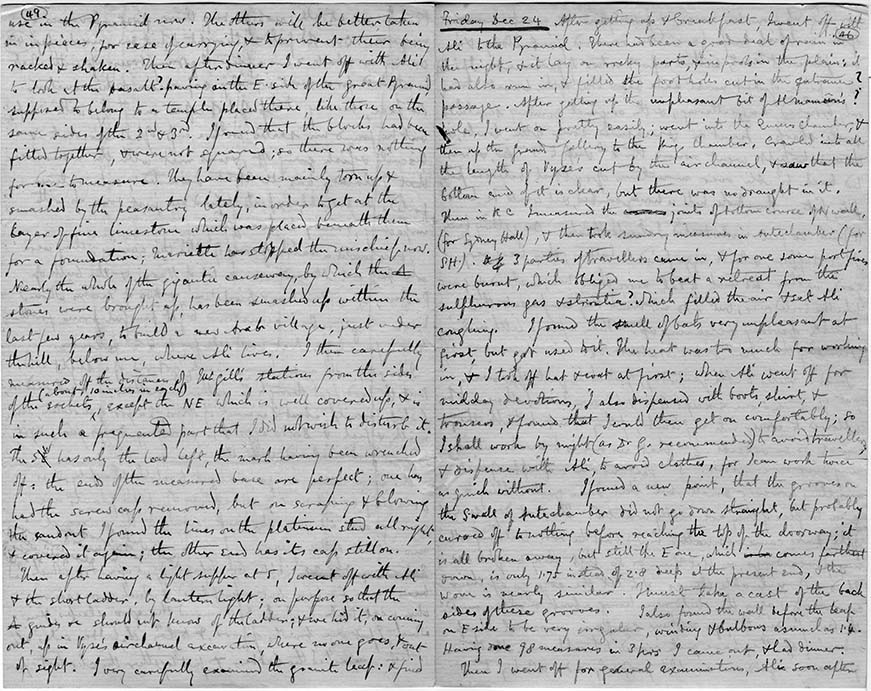 (49)
use in the Pyramid now. The others will be better taken
in in pieces, for ease of carrying, & to prevent their being
racked & shaken. Then after dinner I went off with Ali
to look at the basalt? paving on the E. side of the great Pyramid
supposed to belong to a temple placed there, like those on the
same sides of the 2nd & 3rd. I found that the blocks had been
fitted together, & were not squared; so there was nothing
for me to measure. They have been mainly torn up &
smashed by the peasantry lately, in order to get at the
layer of fine limestone which was placed beneath them
for a foundation; Mariette has stopped the mischief now.
Nearly the whole of the gigantic causeway by which the
stones were brought up, has been smashed up within the
last few years, to build a new Arab village, just under
the hill, below me, where Ali lives. I then carefully
measured off the distances of McGill's stations from the sides
of the sockets, (about 10 inches in each) except the NE which is well covered up, & is
in such a fragmented part that I did not wish to disturb it.
The has only the lead left, the mark having been wrenched
off: the ends of the measured base are perfect; one has
had the screw cap removed, but on scraping & blowing
the sand out I found the lines on the platinum stud all right
& covered it again; the other end has its cap still on.
Then after having a light supper at 5, I went off with Ali
& the short ladder, by lantern light; on purpose so that the
guides &c should not know of the ladder; & we hid it, on coming
out, up in Vyse's airchannel excavation, where no one goes, & out
of sight. I very carefully examined the granite leaf: & find
(50)
Friday Dec 24 After getting up & breakfast I went off with
Ali to the Pyramid. There had been a good deal of rain in
the night, & it lay on rocky parts, & in pools in the plain; it
had also run in, & filled the foot holes cut in the entrance?
passage. After getting up the unpleasant bit of Al mamun's?
hole, I went on pretty easily; went into the Queens chamber, &
then up the Grand Gallery to the Kings Chamber. Crawled into all
the length of Vyse's cut by the air channel, & saw that the
bottom end of it is clear, but there was no draught in it.
Then in K C I measured the joints of bottom course of N wall,
(for Sydney Hall), & then took sundry measures in Antechamber (for
S.H.). 3 parties of travellers came in, & for one some portfires
were burnt, which obliged me to beat a retreat from the
sulphurous gas & strontia? which filled the air & set Ali
coughing. I found the smell of bats very unpleasant at
first, but got used to it. The heat was too much for working
in, & I took off hat & coat at first; when Ali went off for
midday devotions, I also dispensed with boots, shirt, &
trousers, & found that I could then get on comfortably; so
I shall work by night (as Dr G. recommended) to avoid travellers,
& dispense with Ali, to avoid clothes, for I can work twice
as quick without. I found a new point, that the grooves on
the S wall of Antechamber did not go down straight, but probably
curved off to nothing before reaching the top of the doorway; it
is all broken away, but still the E one, which comes farthest
down, is only 1.75 instead of 2.8 deep at the present end, & the
worn is nearly similar. I must take a cast of the back
sides of these grooves. I also found the wall before the leaf
on E side to be very irregular, winding & bulbous as much as
Having done 98 measures in 3 hrs I came out, & had dinner.
Then I went off for general examinations, Ali soon after